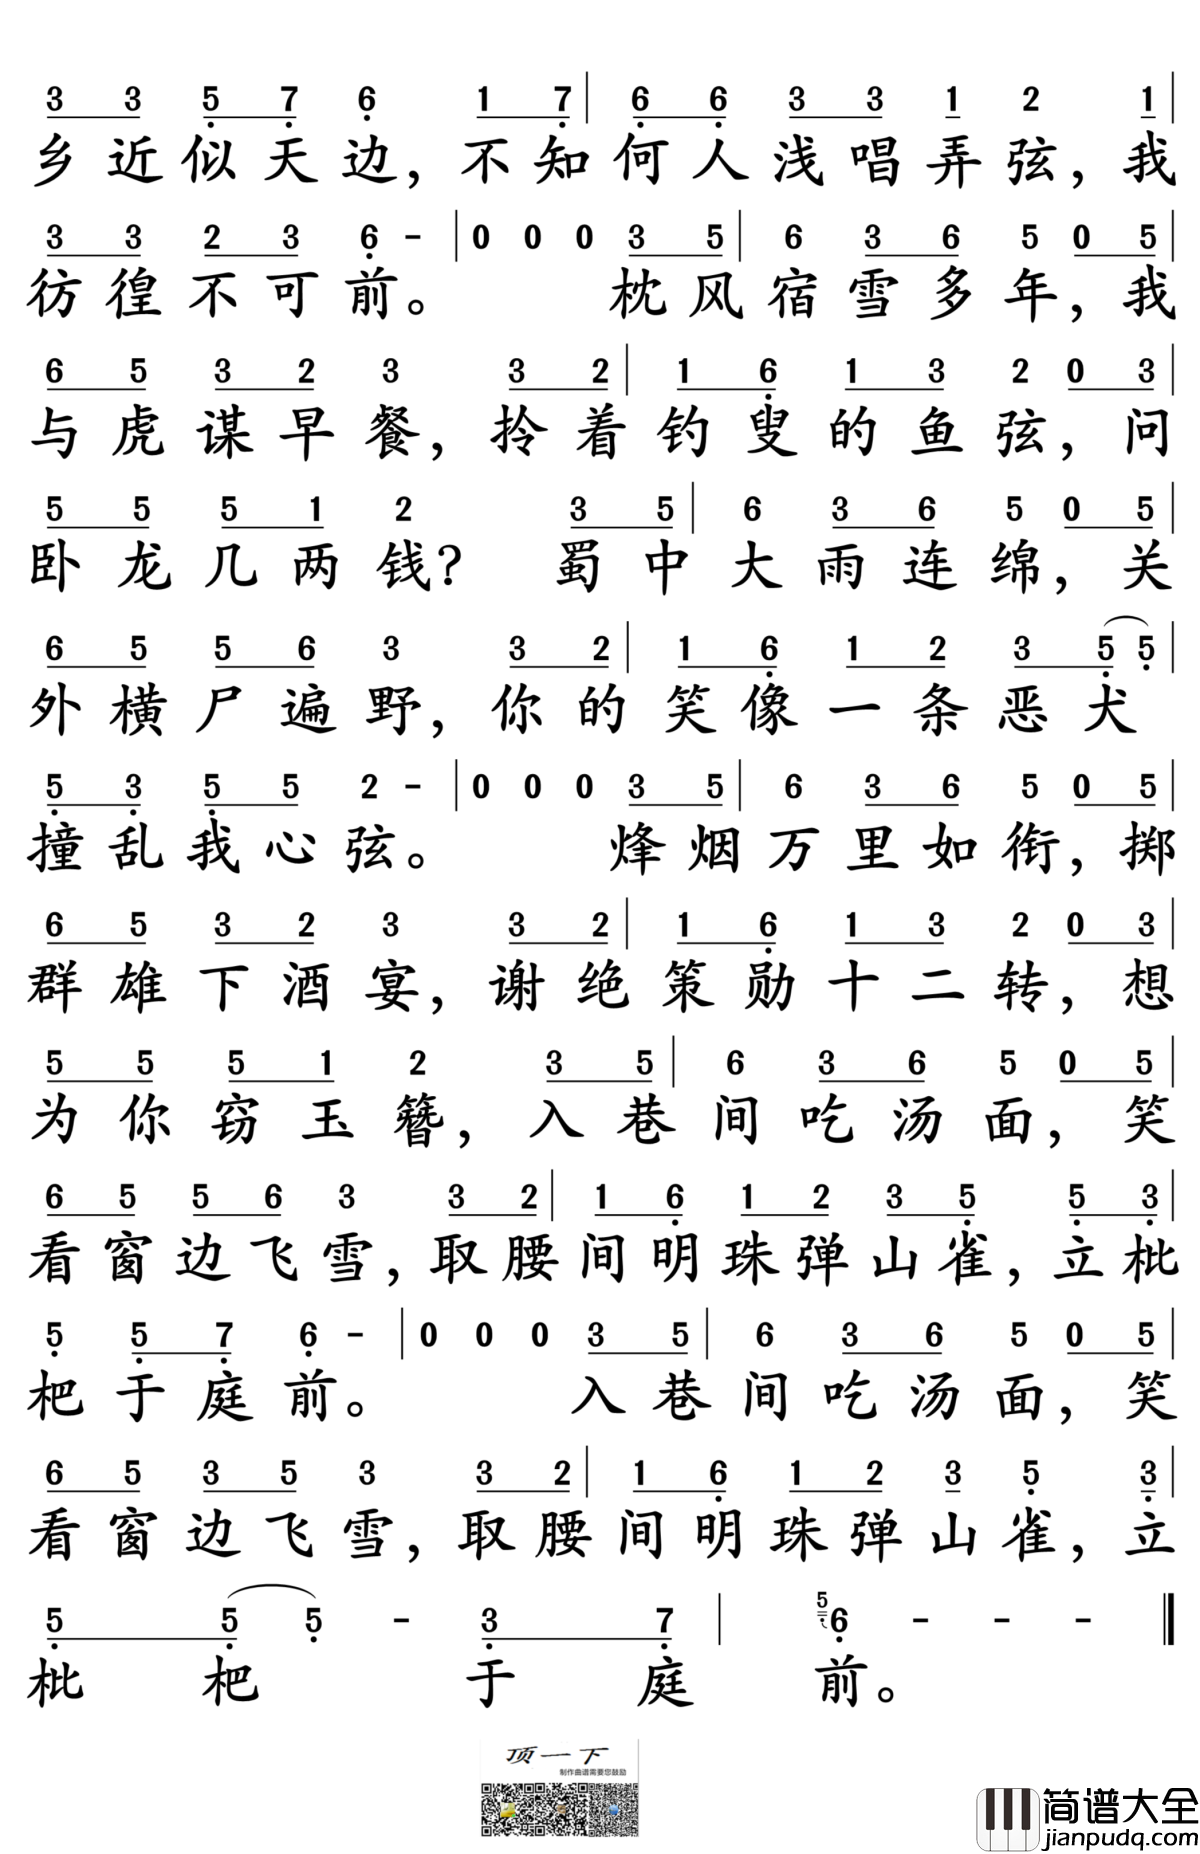 3 3 5 7 6 1 7 | 6 6 3 3 1 2 1 |
乡近似天边，不知何人浅唱弄弦，我
3 3 2 3 6 - | 0 0 0 3 5 | 6 3 6 5 0 5 |
彷徨不可前。 枕风宿雪多年，我
6 5 3 2 3 3 2 | 1 6 1 3 2 0 3 |
与虎谋早餐，拎着钓叟的鱼弦，问
5 5 5 1 2 3 5 | 6 3 6 5 0 5 |
卧龙几两钱？ 蜀中大雨连绵，关
6 5 5 6 3 3 2 | 1 6 1 2 3 5 5 |
外横尸遍野，你的笑像一条恶犬
5 3 5 5 2 - | 0 0 0 3 5 | 6 3 6 5 0 5 |
撞乱我心弦。 烽烟万里如衔，掷
6 5 3 2 3 3 2 | 1 6 1 3 2 0 3 |
群雄下酒宴，谢绝策勋十二转，想
5 5 5 1 2 3 5 | 6 3 6 5 0 5 |
为你窃玉簪，入巷间吃汤面，笑
6 5 5 6 3 3 2 | 1 6 1 2 3 5 5 3 |
看窗边飞雪，取腰间明珠弹山雀，立枇
5 5 7 6 - | 0 0 0 3 5 | 6 3 6 5 0 5 |
杷于庭前。 入巷间吃汤面，笑
6 5 3 5 3 3 2 | 1 6 1 2 3 5 3 |
看窗边飞雪，取腰间明珠弹山雀，立
5 5 5 - 3 7 | 5 6 - - -
枇杷 于庭 前。
顶一下
制作曲谱需要您鼓励
简谱大全
jianpudq.com